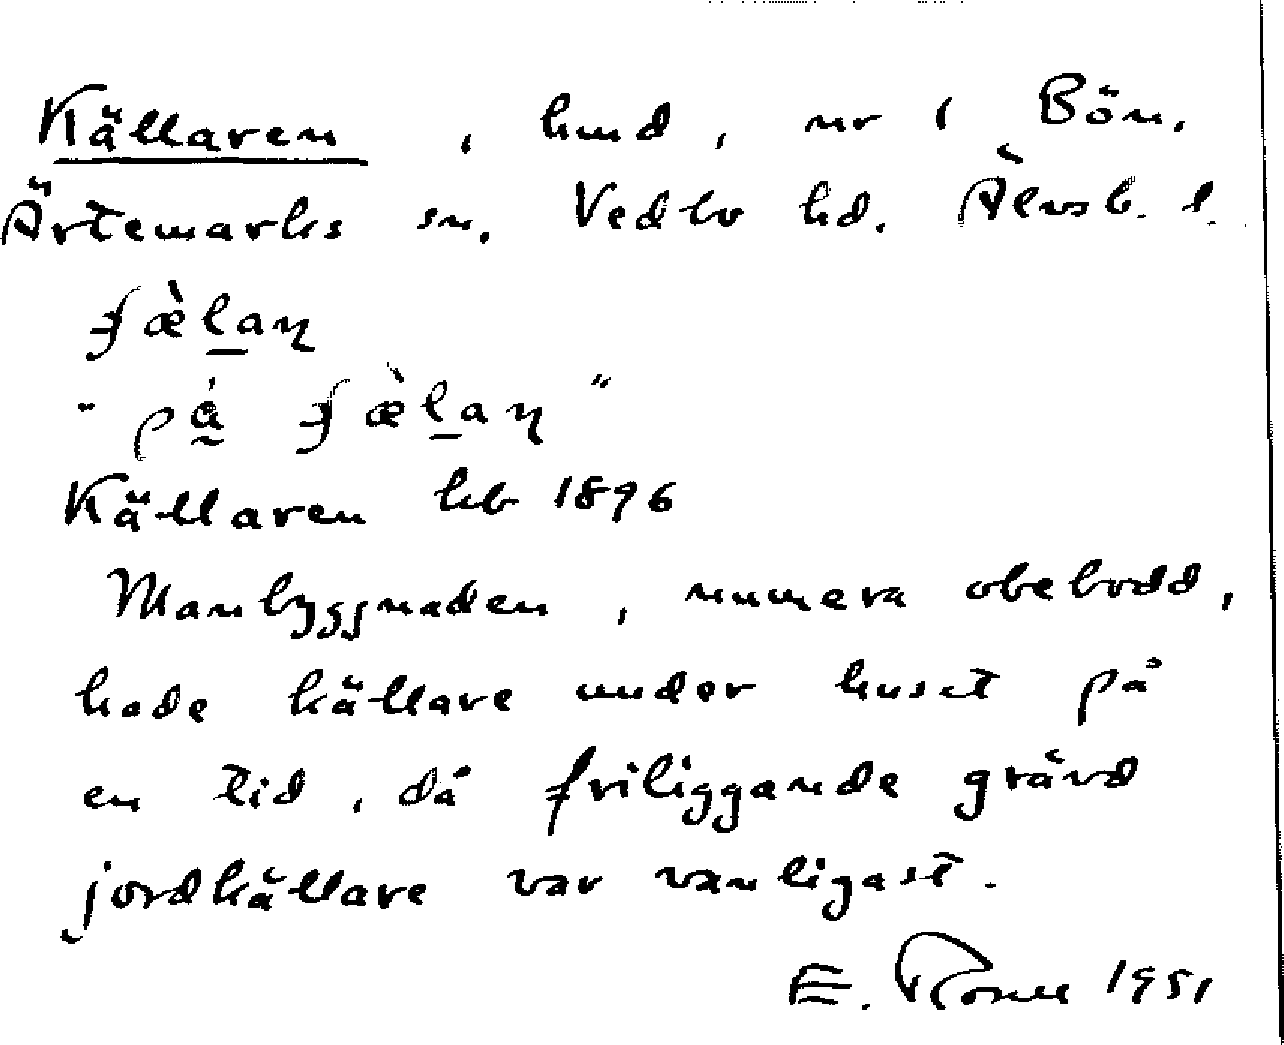 Källaren, hmd, nr 1 Bön,
Ärtemarks sn. Vedbo hd. Älvsb. l.
"på
Källaren hb 1896
Manbyggnaden, numera obebodd,
hade källare under huset på
en tid, då friliggande grävd
jordkällare var vanligast.
E. 1951